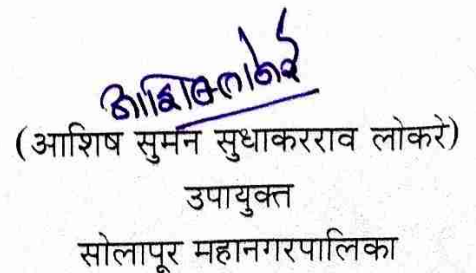 आशिष लोकरे
(आशिष सुमन सुधाकरराव लोकरे)
उपायुक्त
सोलापूर महानगरपालिका